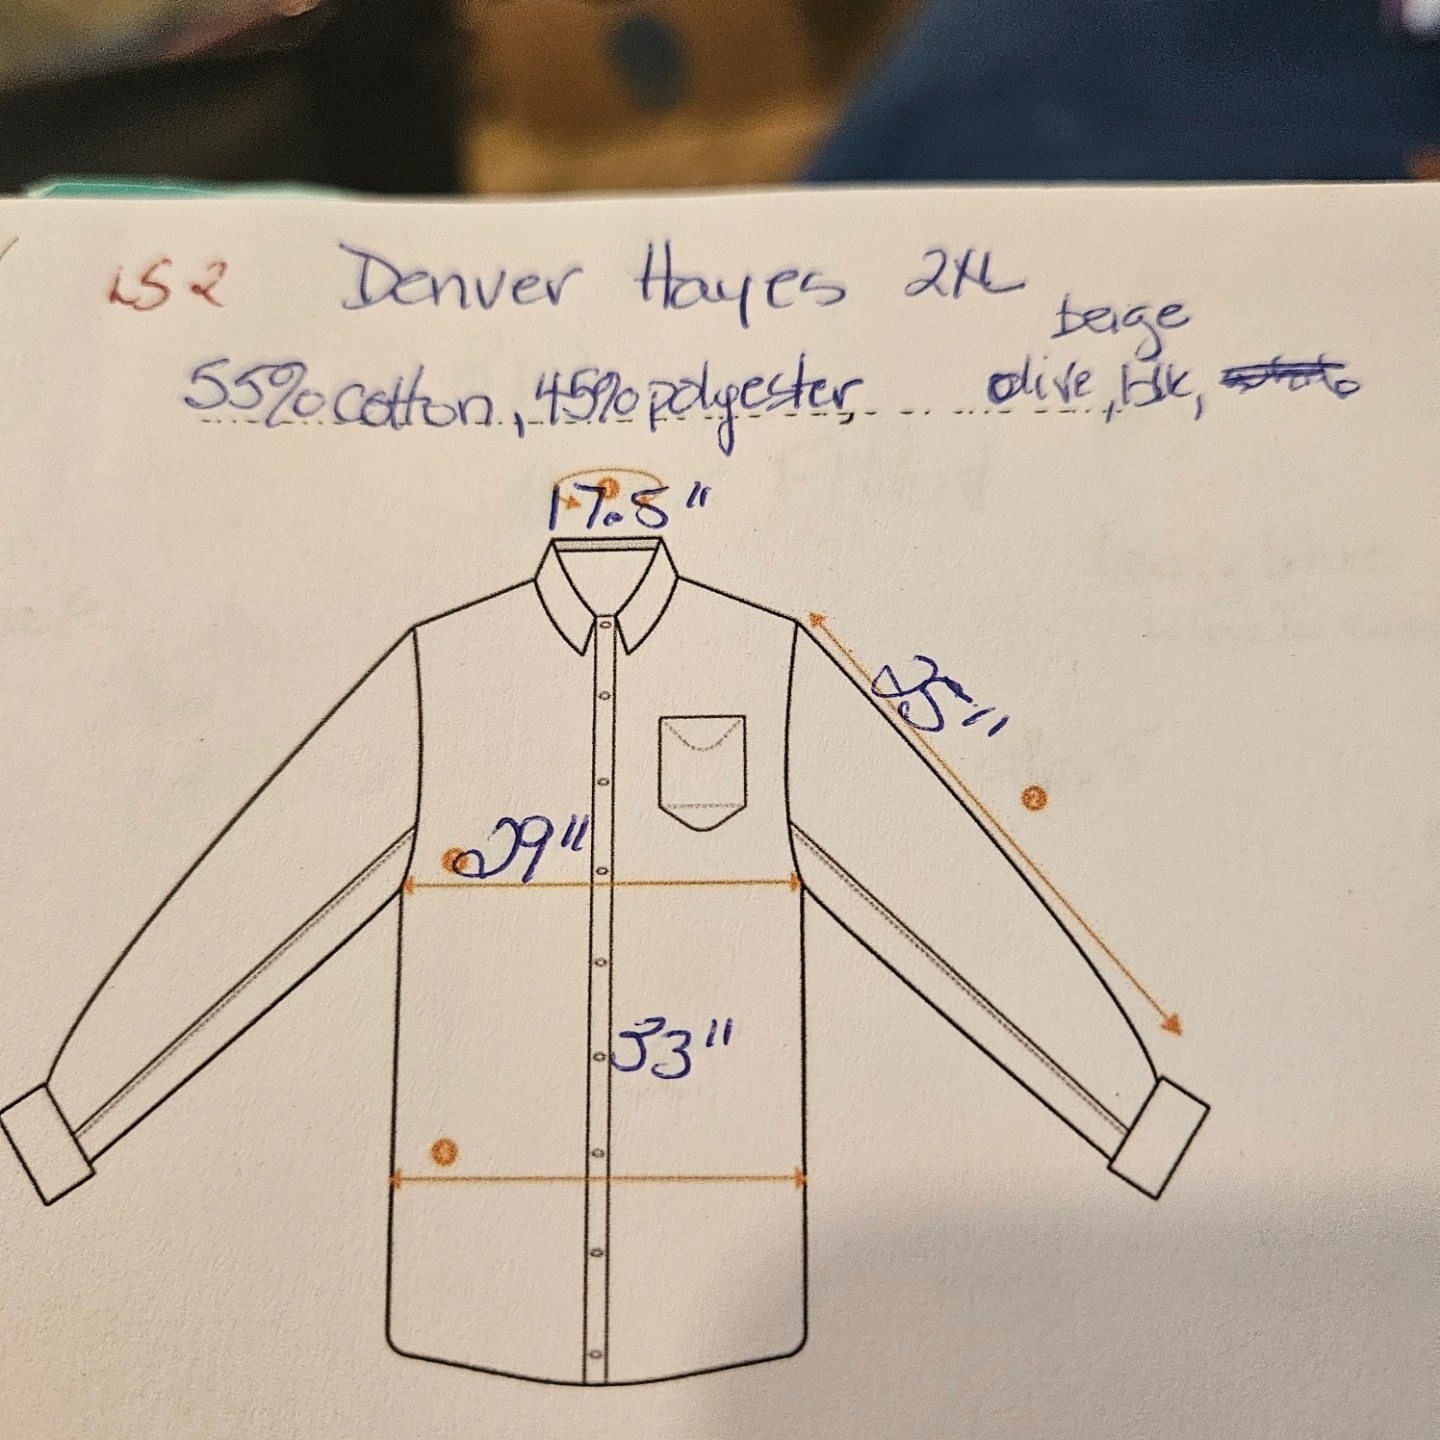 LS 2 Denver Hayes 2XL
beige
55% cotton, 45% polyester olive, blk,
17.5"
29"
33"